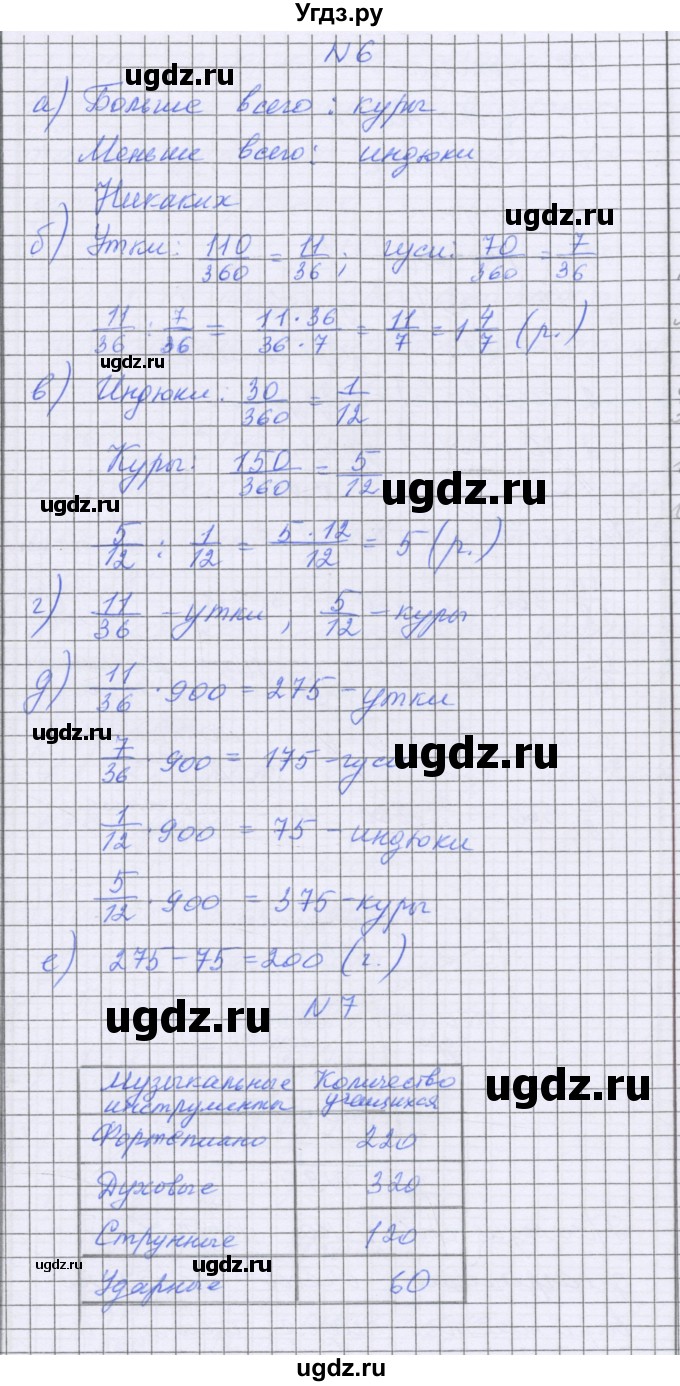 Угдз.ру
N 6
ugdz.ru
а) Больше всего: куры
Меньше всего: индюки
Никаких
ugdz.ru
б) Утки: 110/360 = 11/36; гуси: 70/360 = 7/36
11/36 : 7/36 = 11·36/36·7 = 11/7 = 1 4/7 (р.)
ugdz.ru
в) Индюки: 30/360 = 1/12
Куры: 150/360 = 5/12
ugdz.ru
ugdz.ru
5/12 : 1/12 = 5·12/12 = 5 (р.)
г) 11/36 - утки, 5/12 - куры
д) 11/36 · 900 = 275 - утки
ugdz.ru
7/36 · 900 = 175 - гуси
ugdz.ru
1/12 · 900 = 75 - индюки
5/12 · 900 = 375 - куры
е) 275 - 75 = 200 (г.)
ugdz.ru
N 7
Музыкальные инструменты Количество учащихся
ugdz.ru
Фортепиано 220
Духовые 320
Струнные 120
ugdz.ru
ugdz.ru
Ударные 60
ugdz.ru